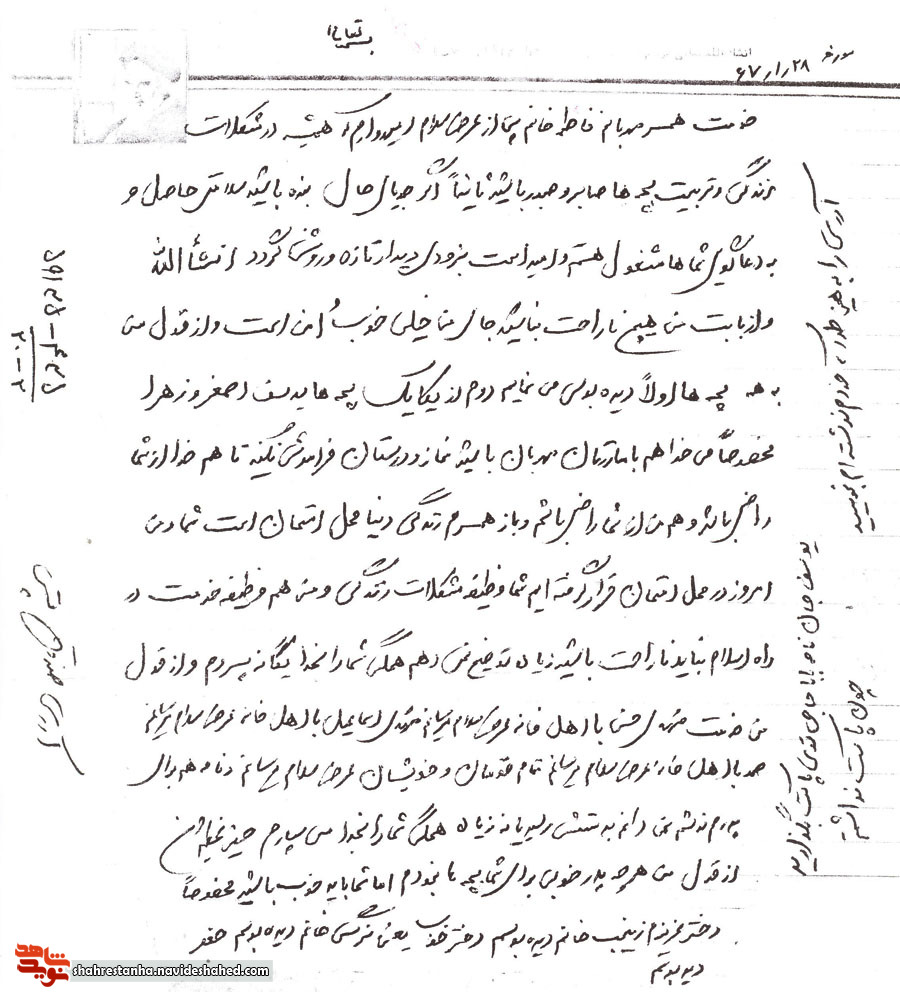 بسمه تعالی
مورخه ۶۷/۱/۲۸
خدمت همسر مهربانم فاطمه خانم پس از عرض سلام امیدوارم که همیشه در مشکلات
زندگی و تربیت بچه ها صابر و صبور باشید ثانیاً اگر جویای حال بنده باشید سلامتی حاصل و
به دعاگوی شماها مشغول هستم و امید است بزودی دیدار تازه و روشن گردد انشأالله
و از بابت من هیچ ناراحت نباشید جای من خیلی خوب و امن است و از قول من
به همه بچه ها اولاً دیده بوسی می نمایم دوم از یکایک بچه ها یوسف اصغر و زهرا
مخصوصاً می خواهم با مادرتان مهربان باشید نماز و درستان فراموش نکنید تا هم خدا از شما
راضی باشد و هم من از شما راضی باشم و باز همسرم زندگی دنیا محل امتحان است شما و من
امروز در محل امتحان قرار گرفته ایم شما وظیفه مشکلات زندگی و من هم وظیفه خدمت در
راه اسلام نباید ناراحت باشید زیاد توضیح نمی دهم همگی شما را بخدا یگانه سپردم و از قول
من خدمت مشهدی حسن با اهل خانه عرض سلام میرسانم مشهدی اسماعیل با اهل خانه عرض سلام میرسانم
صمد با اهل خانه عرض سلام میرسانم تمام قومان و خویشان عرض سلام میرسانم و نامه هم برای
پدرم نوشتم نمی دانم به دستش رسید یا نه زیاد همگی شما را بخدا می سپارم
از قول من هر چه پدر خوبی برای شما بچه ها نبودم اما شما باید خوب باشید مخصوصاً
دختر عزیزم زینب خانم دیده بوسم دختر خوب یعنی نرگس خانم دیده بوسم
دیده بوسم
آدرس را به همین طور که خودم نوشته ام بنویسید
یوسف جان نامه بابا حاجی توی پاکت بگذارید
چون پاکت نداشتم
آدرس صندوق پستی
نوید شاهد
shahrestanha.navideshahed.com